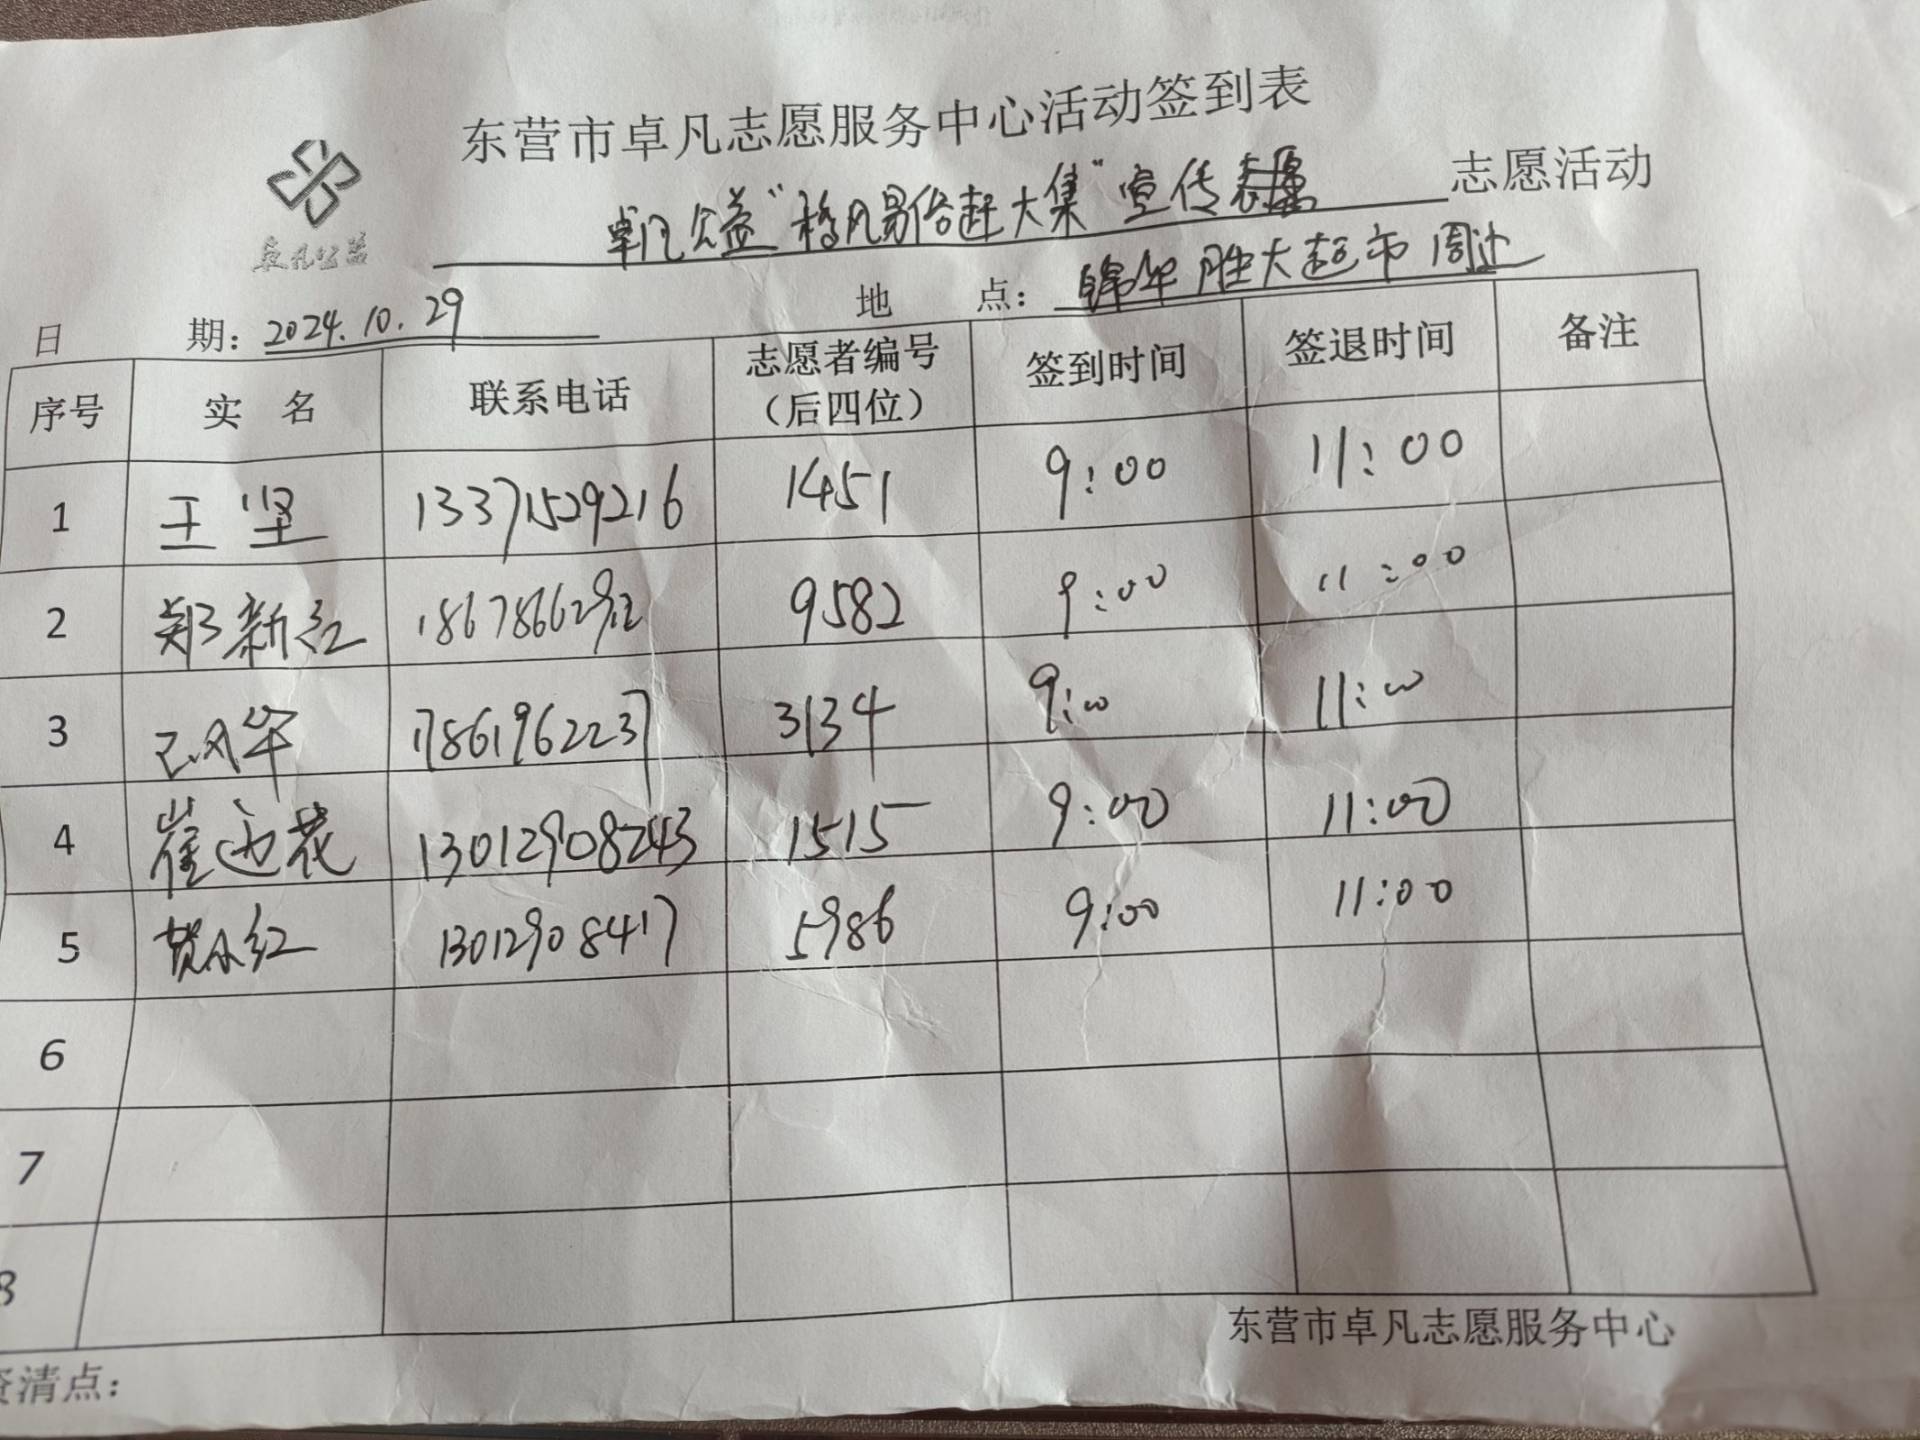 东营市卓凡志愿服务中心活动签到表
卓凡公益“移风易俗赶大集”宣传志愿 志愿活动
卓凡公益
日 期：2024.10.29 地 点：锦华胜大超市周边
序号 实 名 联系电话 志愿者编号（后四位） 签到时间 签退时间 备注
1 王坚 13371529216 1451 9:00 11:00
2 郑新红 9582 9:00 11:00
3 17861962237 3134 9:00 11:00
4 崔 花 1515 9:00 11:00
5 贺小红 13012908417 5986 9:00 11:00
6
7
8
东营市卓凡志愿服务中心
资清点：